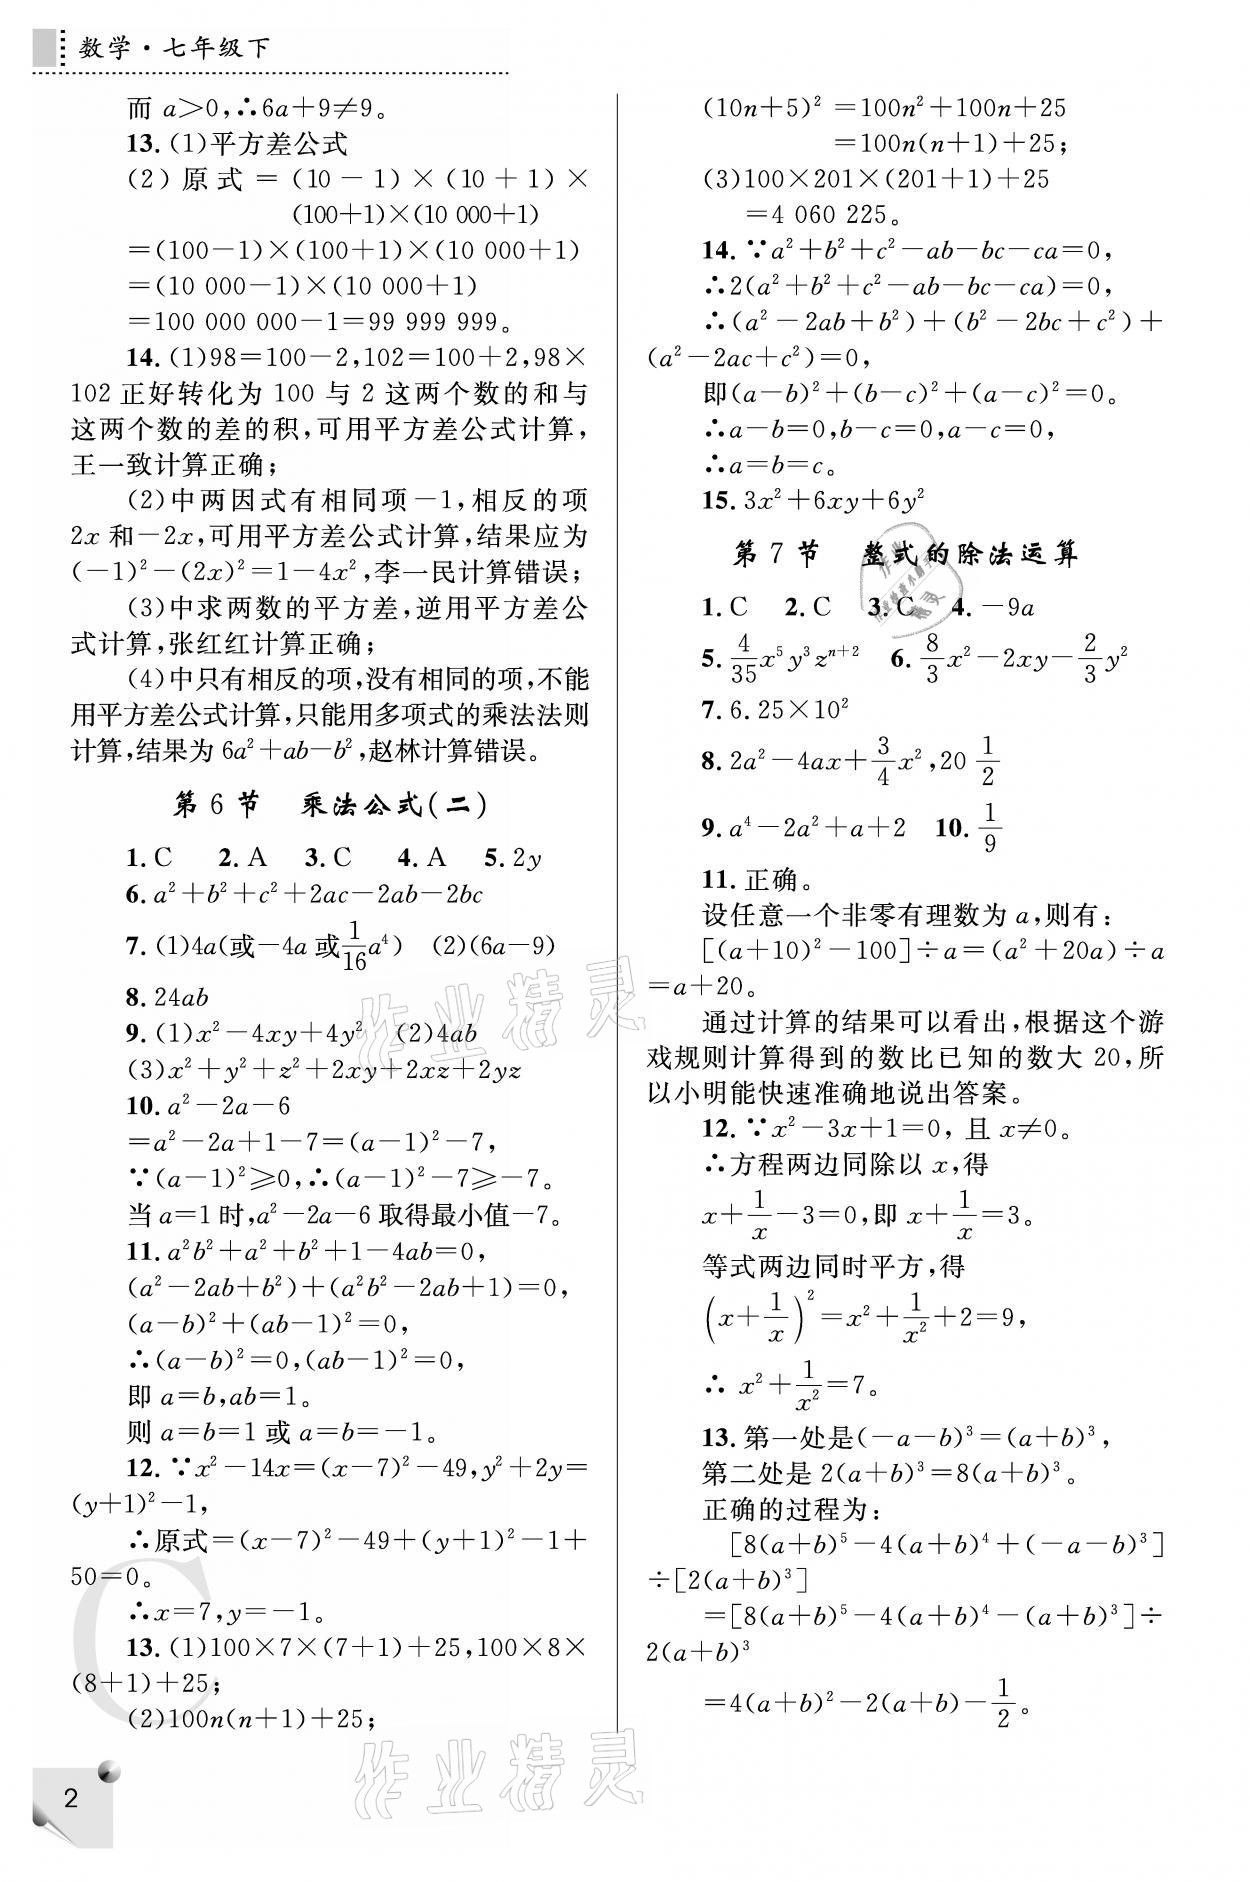 数学·七年级下
而 a>0,∴6a+9≠9。
13.(1)平方差公式
(2)原式=(10-1)×(10+1)×
(100+1)×(10 000+1)
=(100-1)×(100+1)×(10 000+1)
=(10 000-1)×(10 000+1)
=100 000 000-1=99 999 999。
14.(1)98=100-2,102=100+2,98×
102正好转化为 100 与 2 这两个数的和与
这两个数的差的积,可用平方差公式计算,
王一致计算正确;
(2)中两因式有相同项-1,相反的项
2x和-2x,可用平方差公式计算,结果应为
(-1)²-(2x)²=1-4x²,李一民计算错误;
(3)中求两数的平方差,逆用平方差公
式计算,张红红计算正确;
(4)中只有相反的项,没有相同的项,不能
用平方差公式计算,只能用多项式的乘法法则
计算,结果为 6a²+ab-b²,赵林计算错误。
第 6 节 乘法公式(二)
1.C 2.A 3.C 4.A 5.2y
6.a²+b²+c²+2ac-2ab-2bc
7.(1)4a(或-4a或1/16a⁴) (2)(6a-9)
8.24ab
9.(1)x²-4xy+4y² (2)4ab
(3)x²+y²+z²+2xy+2xz+2yz
10.a²-2a-6
=a²-2a+1-7=(a-1)²-7,
∵(a-1)²≥0,∴(a-1)²-7≥-7。
当a=1时,a²-2a-6取得最小值-7。
11.a²b²+a²+b²+1-4ab=0,
(a²-2ab+b²)+(a²b²-2ab+1)=0,
(a-b)²+(ab-1)²=0,
∴(a-b)²=0,(ab-1)²=0,
即 a=b,ab=1。
则 a=b=1 或 a=b=-1。
12.∵x²-14x=(x-7)²-49,y²+2y=
(y+1)²-1,
∴原式=(x-7)²-49+(y+1)²-1+
50=0。
∴x=7,y=-1。
13.(1)100×7×(7+1)+25,100×8×
(8+1)+25;
(2)100n(n+1)+25;
(10n+5)² =100n²+100n+25
=100n(n+1)+25;
(3)100×201×(201+1)+25
=4 060 225。
14.∵a²+b²+c²-ab-bc-ca=0,
∴2(a²+b²+c²-ab-bc-ca)=0,
∴(a²-2ab+b²)+(b²-2bc+c²)+
(a²-2ac+c²)=0,
即(a-b)²+(b-c)²+(a-c)²=0。
∴a-b=0,b-c=0,a-c=0,
∴a=b=c。
15.3x²+6xy+6y²
第 7 节 整式的除法运算
1.C 2.C 3.C 4.-9a
5.4/35x⁵y³zⁿ⁺² 6.8/3x²-2xy-2/3y²
7.6.25×10²
8.2a²-4ax+3/4x²,20 1/2
9.a⁴-2a²+a+2 10.1/9
11.正确。
设任意一个非零有理数为 a,则有:
[(a+10)²-100]÷a=(a²+20a)÷a
=a+20。
通过计算的结果可以看出,根据这个游
戏规则计算得到的数比已知的数大 20,所
以小明能快速准确地说出答案。
12.∵x²-3x+1=0, 且 x≠0。
∴方程两边同除以 x,得
x+1/x-3=0,即 x+1/x=3。
等式两边同时平方,得
(x+1/x)²=x²+1/x²+2=9,
∴ x²+1/x²=7。
13.第一处是(-a-b)³=(a+b)³,
第二处是 2(a+b)³=8(a+b)³。
正确的过程为:
[8(a+b)⁵-4(a+b)⁴+(-a-b)³]
÷[2(a+b)³]
=[8(a+b)⁵-4(a+b)⁴-(a+b)³]÷
2(a+b)³
=4(a+b)²-2(a+b)-1/2。
作业精灵
作业精灵
C
2